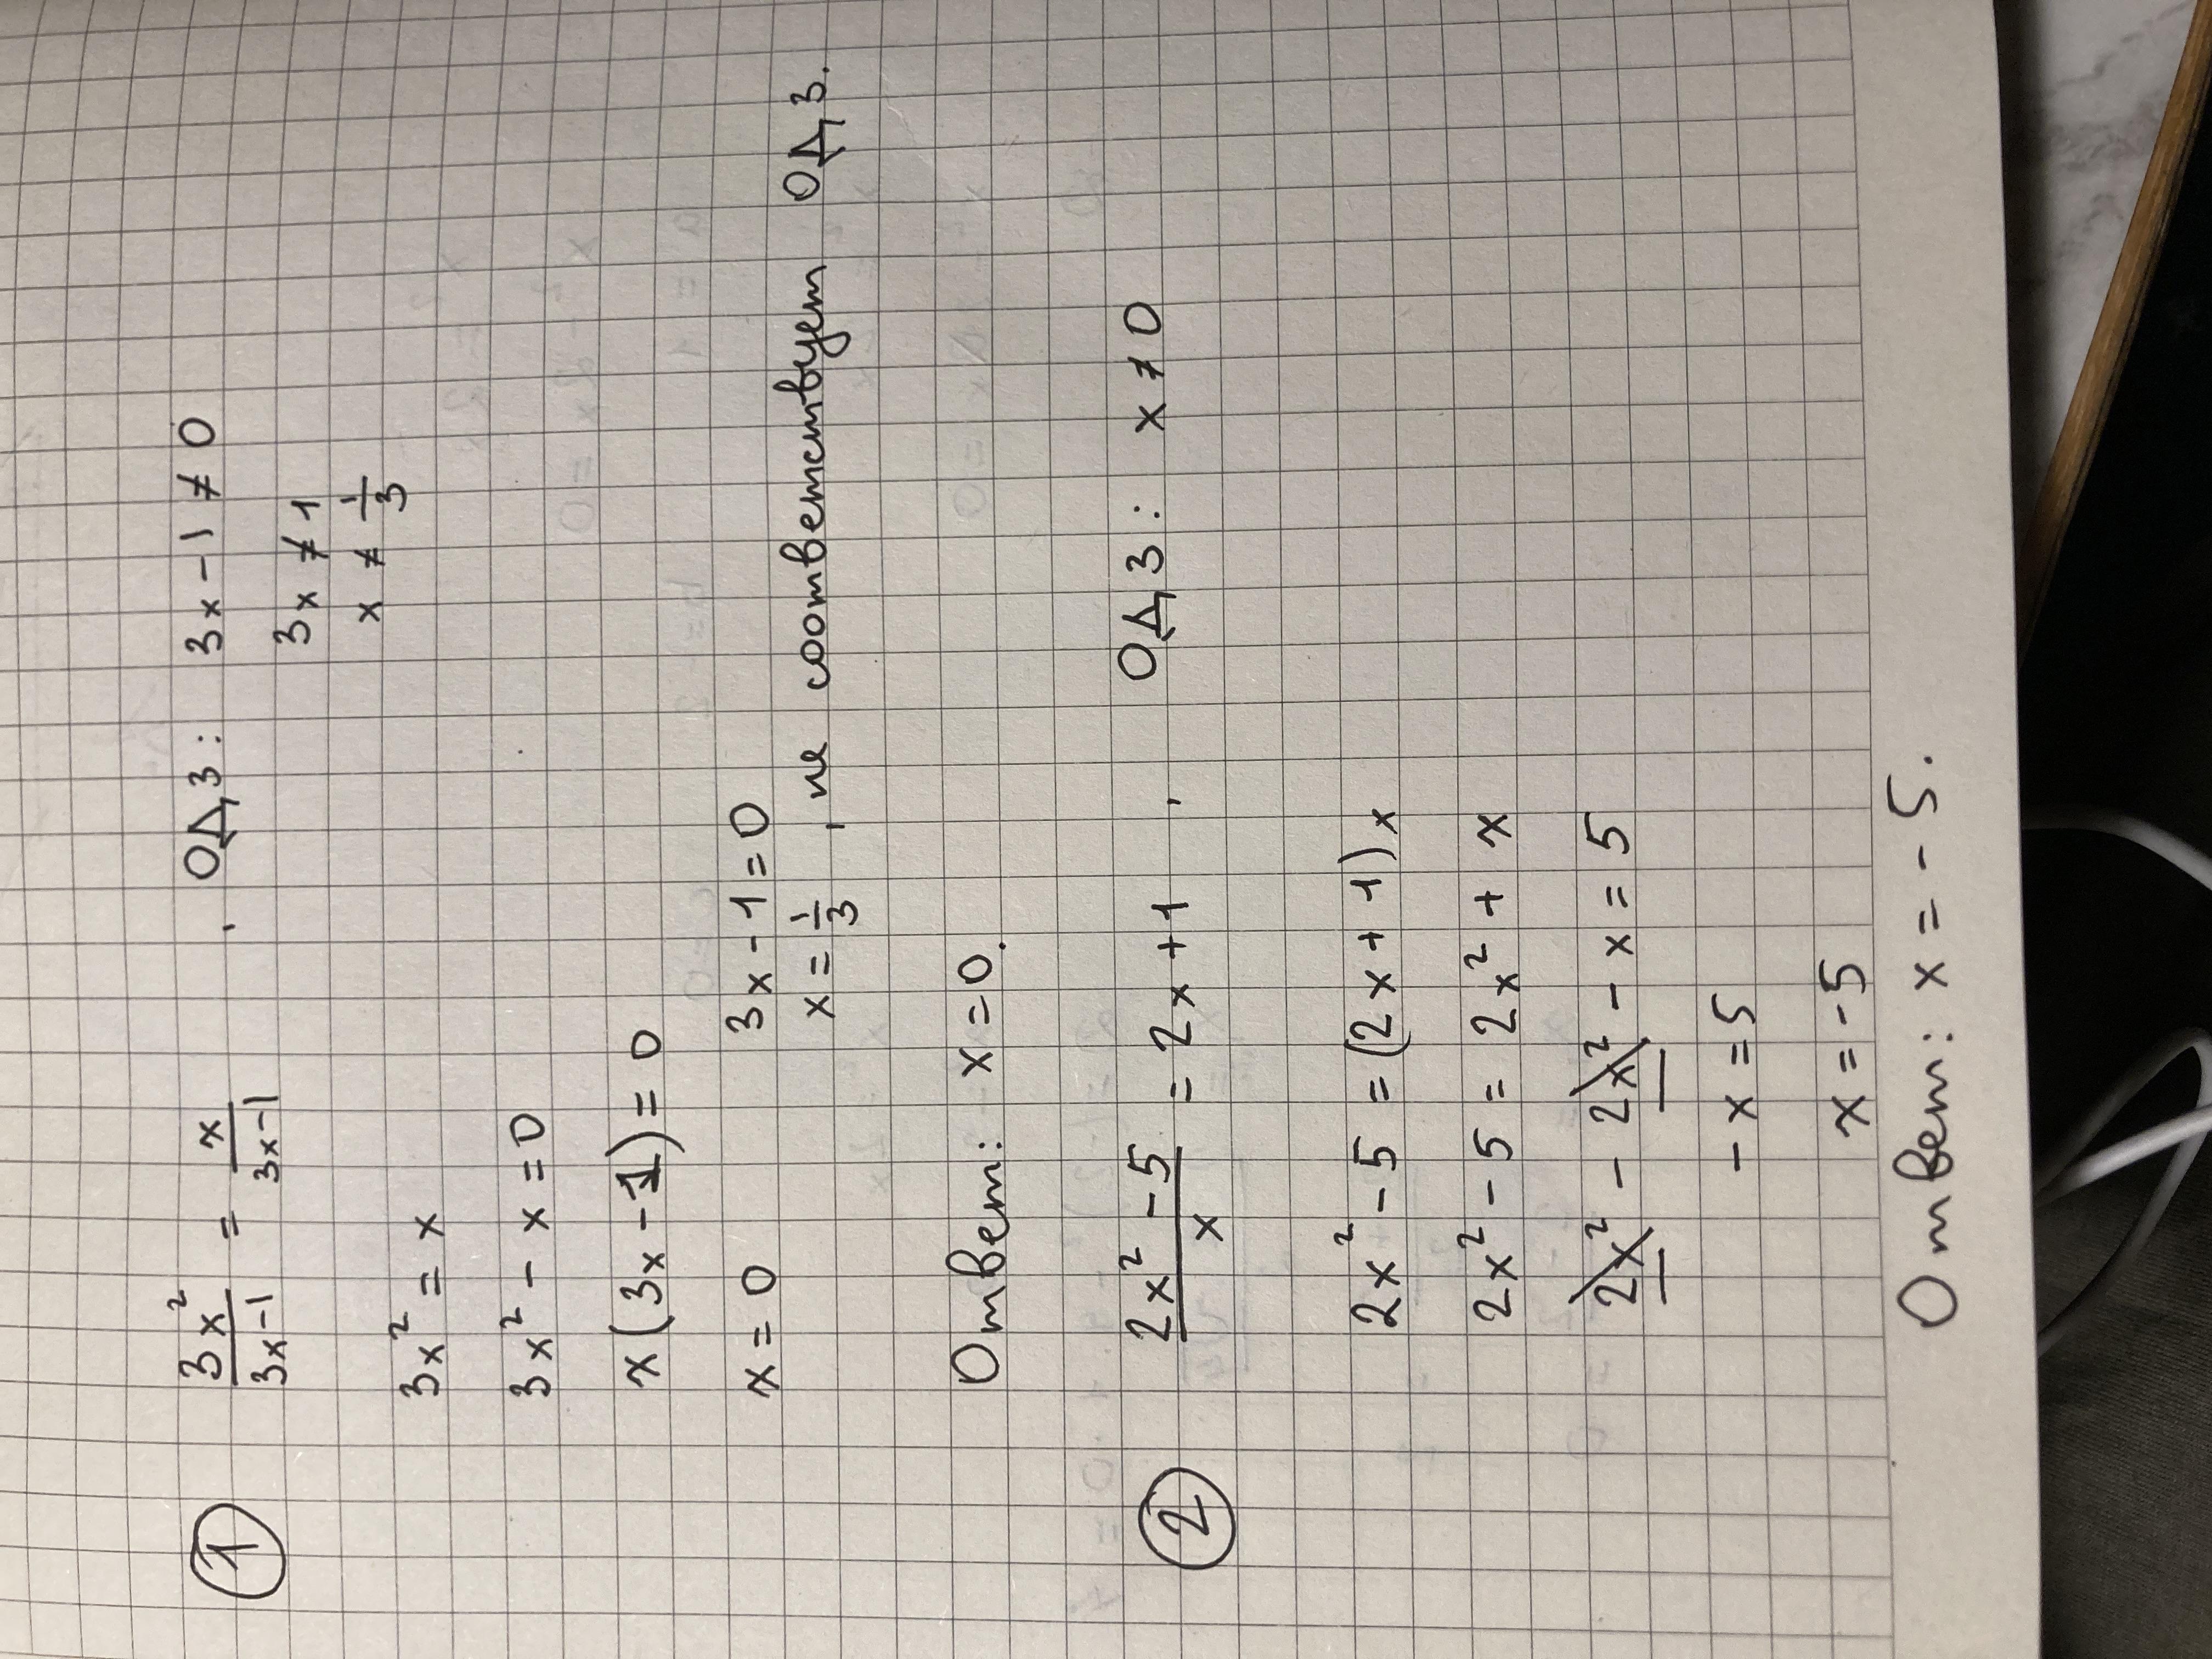 ① 3x²/3x-1 = x/3x-1 , ОДЗ: 3x-1≠0
3x≠1
3x² = x x≠1/3
3x² - x = 0
x(3x-1)=0
x=0 3x-1=0
x=1/3, не соответствует ОДЗ.
Ответ: x=0.
② 2x²-5/x = 2x+1 , ОДЗ: x≠0
2x²-5=(2x+1)x
2x²-5=2x²+x
2x²-2x²-x=5
-x=5
x=-5
Ответ: x=-5.